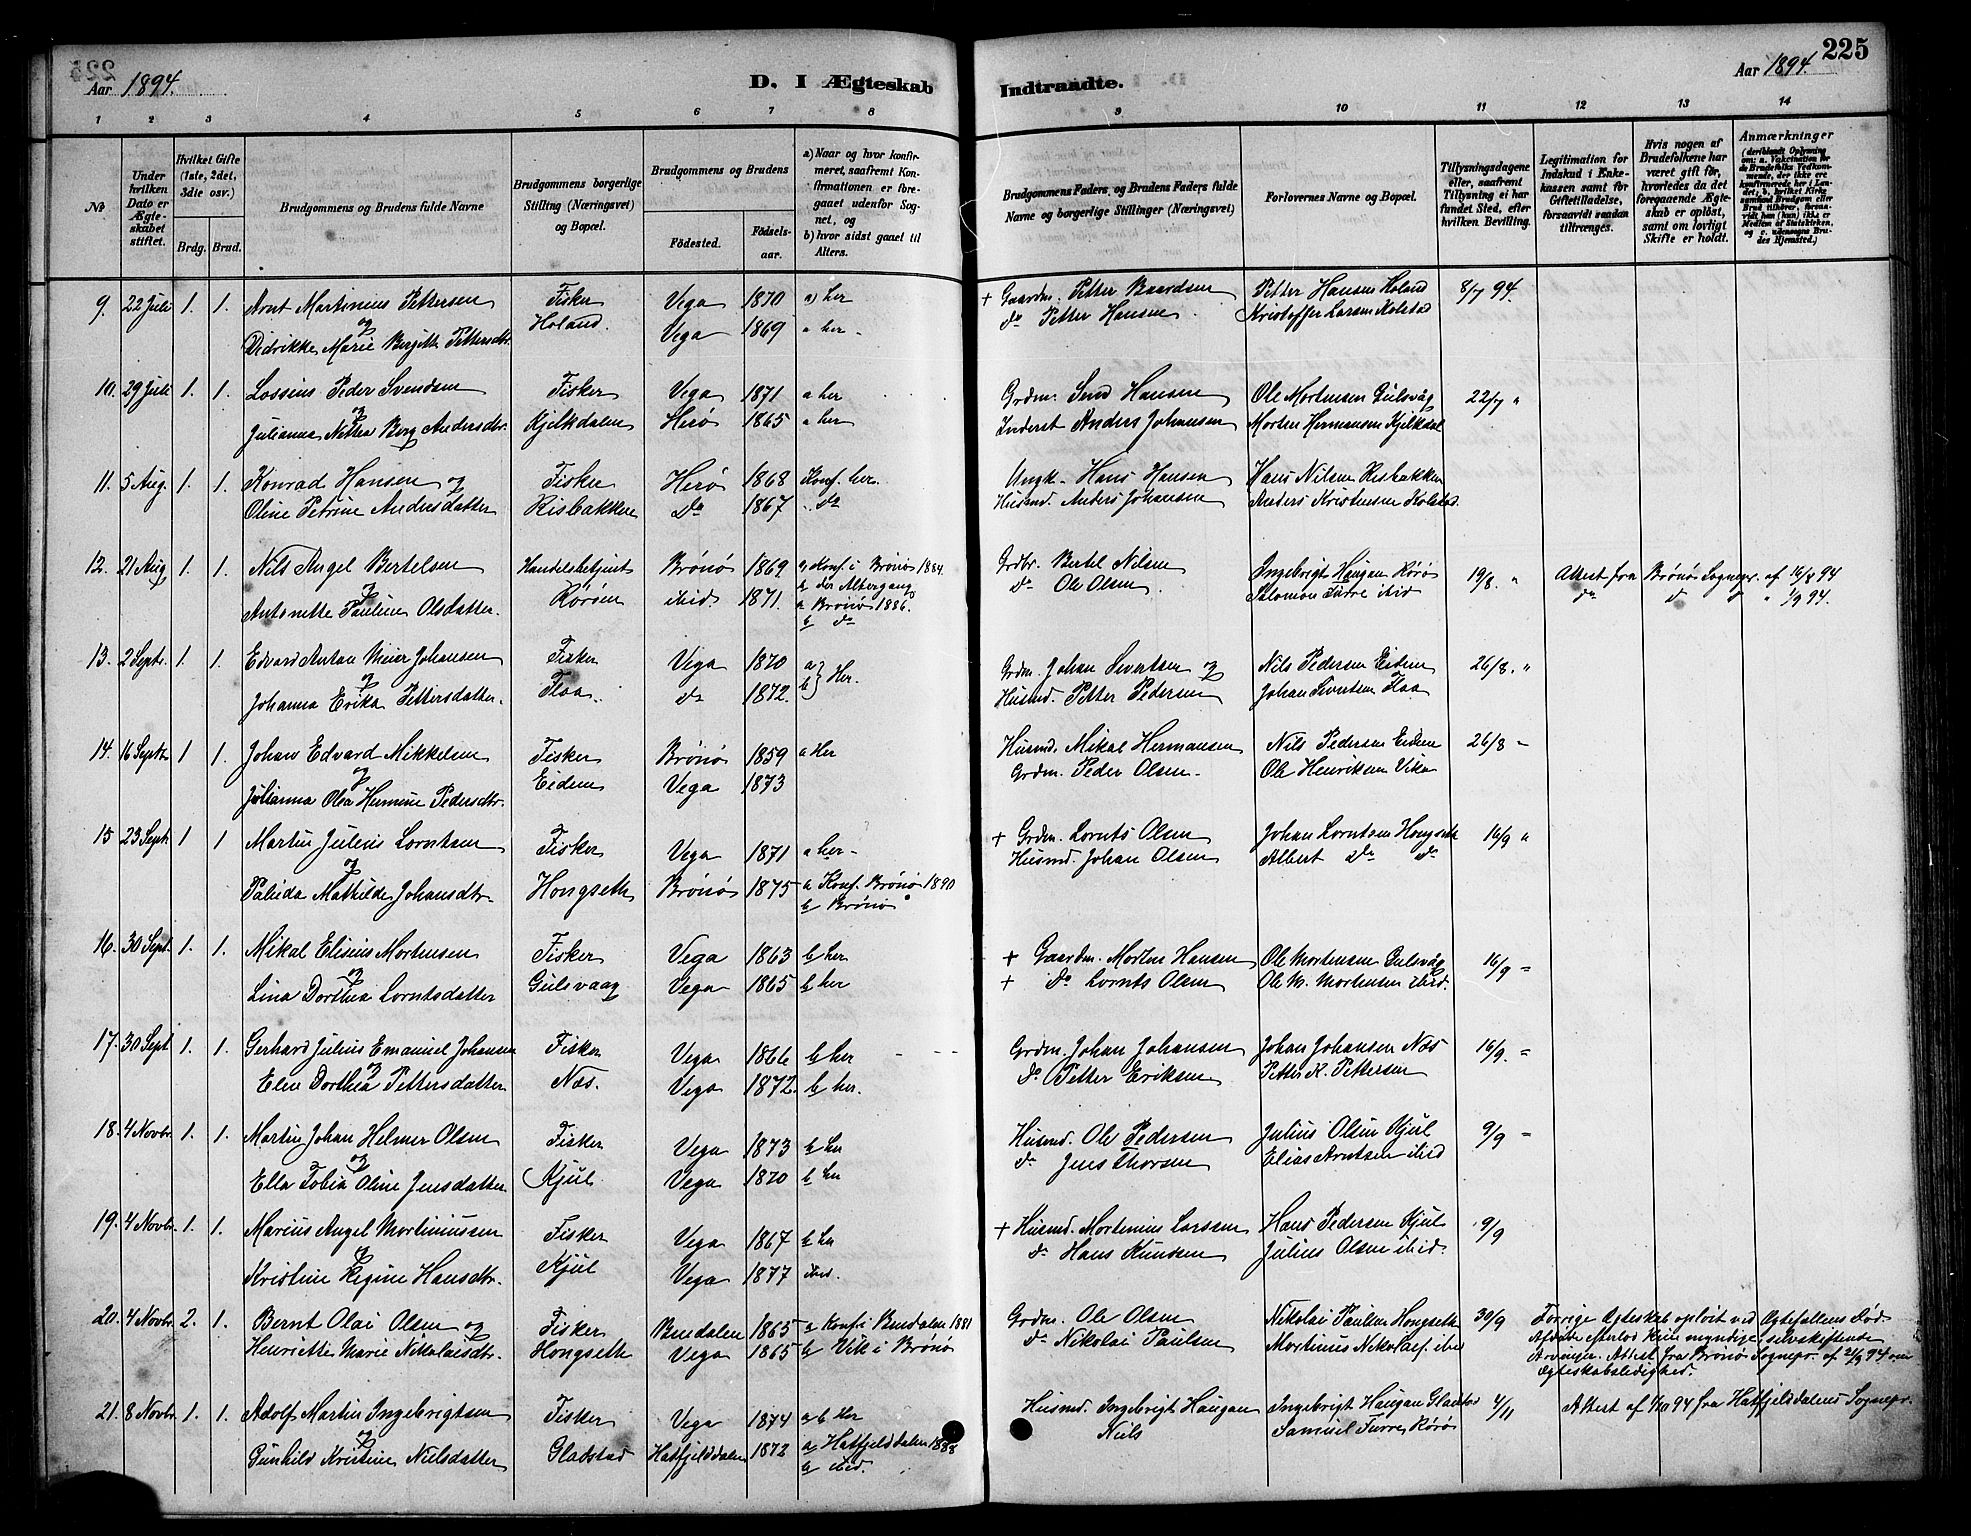 Aar 1894.
D. I Ægteskab
Indtraadte.
Aar 1894.
225
1 2 3 4 5 6 7 8
9 10 11 12 13 14
No
Under hvilken Dato er Ægteskabet stiftet.
Hvilket Gifte (1ste, 2det, 3die osv.)
Brdg. Brud.
Brudgommens og Brudens fulde Navne
Brudgommens borgerlige Stilling (Næringsvei) og Bopæl.
Brudgommens og Brudens
Fødested.
Fødselsaar.
a) Naar og hvor konfirmeret, saafremt Konfirmationen er foregaaet udenfor Sognet, og
b) hvor sidst gaaet til Alters.
Brudgommens Faders, og Brudens Faders fulde Navne og borgerlige Stillinger (Næringsvei)
Forlovernes Navne og Bopæl.
Tillysningsdagene eller, saafremt Tillysning ei har fundet Sted, efter hvilken Bevilling.
Legitimation for Indskud i Enkekassen samt for Giftetilladelse, forsaavidt saadan tiltrænges.
Hvis nogen af Brudefolkene har været gift før, hvorledes da det foregaaende Ægteskab er opløst, samt om lovligt Skifte er holdt.
Anmærkninger
9. 22 Juli 1. 1. Arnt Martinius Pettersen Fisker Vega 1870 a) her + Gaardm. Petter Baardsen Petter Hansen Holand 8/7 94.
og Holand
Didrikke Marie Bergitte Pettersdtr. Vega 1869 a her - do Petter Hansen Kristoffer Larsen Kolstad
10. 29 Juli 1. 1. Lossius Peder Svendsen Fisker Vega 1871 a her Grdm. Send Hansen Ole Mortensen Gulsvåg 22/7 "
og
Julianna Nettea Berg Andersdtr. Kjelkdalen Herø 1865 a her Inderst Anders Johansen Morten Hermansen Kjelkdal
11. 5 Aug. 1. 1. Konrad Hansen og Fisker Herø 1868 Konf. her. Ungk. Hans Hansen Hans Nilsen Risbakken
Oline Petrine Andersdatter Risbakken do 1867 " do Husmd. Anders Johansen Anders Kristensen Kolstad.
12. 21 Aug 1. 1. Nils Angel Bertelsen Handelsbetjent Brønø 1869 a Konf. i Brønø 1884. Grdbr. Bertel Nilsen Ingebrigt Haugan Rørø 19/8. " Attest fra Brønø Sognepr. af 16/8 94
og b der Altergang
Antonette Pauline Olsdatter. Rørøen ibid. 1871. a Brønø 1886. do Ole Olsen Salomon Furre ibid do d d " 1/9 94.
b do
13. 2 Septr. 1. 1. Edvard Antan Meier Johansen Fisker Vega 1870 a} Her. Grdm. Johan Sivertsen og Nils Pedersen Eidem 26/8. "
og
Johanna Erika Pettersdatter. Flaa. do 1872. b} Husmd. Petter Pedersen Johan Sivertsen Flaa
14. 16 Septr. 1 1. Johan Edvard Mikkelsen Fisker Brønø 1859 a Her Husmd. Mikal Hermansen Nils Pedersen Eidem 26/8 "
og
Julianna Olea Hermine Pedersdtr. Eidem Vega 1873 Grdm. Peder Olsen. Ole Henriksen Vika
15 23 Septr. 1 1 Martin Julius Lorntsen Fisker Vega 1871 a her - + Grdm. Lornts Olsen Johan Lorntsen Hongseth 16/9 "
og
Palida Mathilde Johansdtr. Hongseth Brønø 1875 a Konf. Brønø 1890 Husmd. Johan Olsen Albert do do
b Brønø
16. 30 Sept. 1. 1. Mikal Elisius Mortensen Fisker Vega 1863 b her + Gaardm. Morten Hansen Ole Mortensen Gulsvåg 16/9 "
og
Lina Dorthea Lorntsdatter Gulsvaag Vega 1865 b her + do Lornts Olsen Ole M. Mortensen ibid.
17. 30 Sept 1. 1. Gerhard Julius Emanuel Johansen Fisker Vega 1866 b her Grdm. Johan Johansen Johan Johansen Næs 16/9. "
og
Elen Dorthea Pettersdatter Næs. Vega 1872. b her. do Petter Eriksen Petter K. Pettersen
18. 4 Novbr. 1. 1. Martin Johan Helmer Olsen Fisker Vega 1873 b her Husmd. Ole Pedersen Julius Olsen Kjul 9/9 "
og
Ella Tobia Oline Jensdatter Kjul Vega 1870 b her do Jens Thorsen Elias Arntsen ibid
19. 4 Novbr. 1. 1. Marius Angel Mortiniussen Fisker Vega 1867 b her + Husmd. Mortinius Larssen Hans Pedersen Kjul 9/9
og
Kristine Regine Hansdtr. Kjul Vega 1877 ibid. do Hans Knudsen Julius Olsen ibid.
20. 4 Novbr. 2. 1. Bernt Olai Olsen og Fisker Bindalen 1865 a Konf. i Bindalen 1881 Grdm. Ole Olsen Nikolai Paulsen Hongseth 30/9 Forrige Ægteskab opløst ved Ægtefællens Død.
Henriette Marie Nikolaisdtr. Hongseth Vega 1865 b Vik i Brønø do Nikolai Paulsen Mortinus Nikolaisf. ibid Afdøde efterlod kun myndige selvskiftende
Arvinger. Attest fra Brønø Sognepr. af 21/9 94 om
Ægteskabsledighed.
21. 8 Novbr. 1. 1. Adolf Martin Ingebrigtsen Fisker Vega 1874 a b Her Husmd. Ingebrigt Haugan Ingebrigt Haugan Gladstad 4/11 Attest af 1/10 94 fra Hatfjelddalens Sognepr.
og
Gunhild Kristine Nielsdatter Gladstad Hatfjelddalen 1872 a Hatfjelddalen 1888 Niels Samuel Furre Rørø
b ibid.